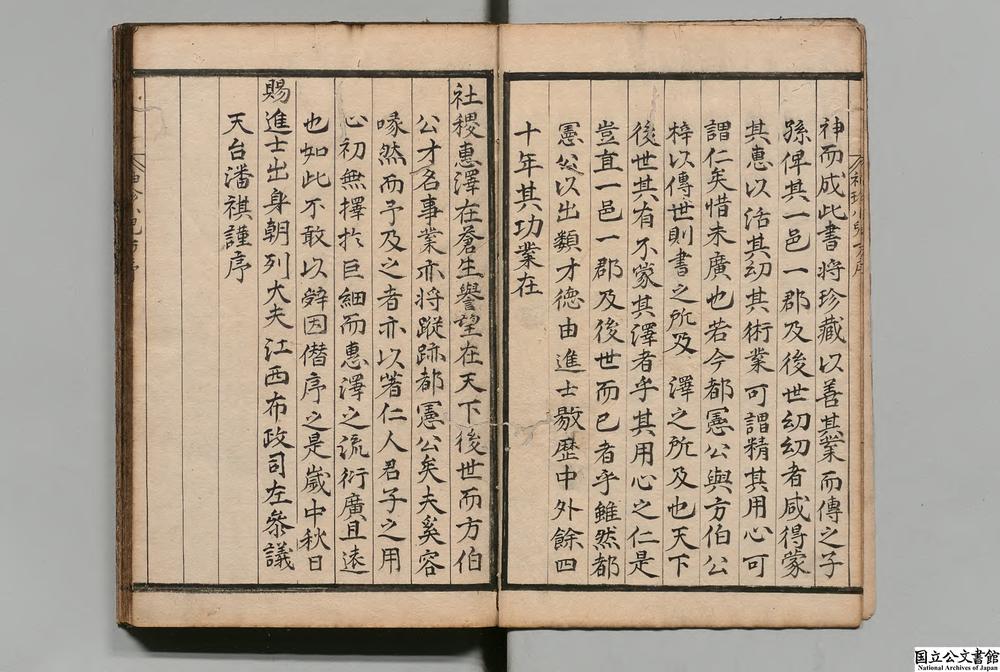 神而成此書將珍藏以善其業而傳之子
孫俾其一邑一郡及後世幼幼者咸得蒙
其惠以活其幼其術業可謂精其用心可
謂仁矣惜未廣也若今都憲公與方伯公
梓以傳世則書之所及澤之所及也天下
後世其有不蒙其澤者乎其用心之仁是
豈直一邑一郡及後世而已者乎雖然都
憲公以出類才德由進士敭歷中外餘四
十年其功業在
社稷惠澤在蒼生譽望在天下後世而方伯
公才名事業亦將蹤跡都憲公矣夫奚容
喙然而予及之者亦以著仁人君子之用
心初無擇於巨細而惠澤之流衍廣且遠
也如此不敢以辤因僭序之是歲中秋日
賜進士出身朝列大夫江西布政司左參議
天台潘祺謹序
国立公文書館
National Archives of Japan